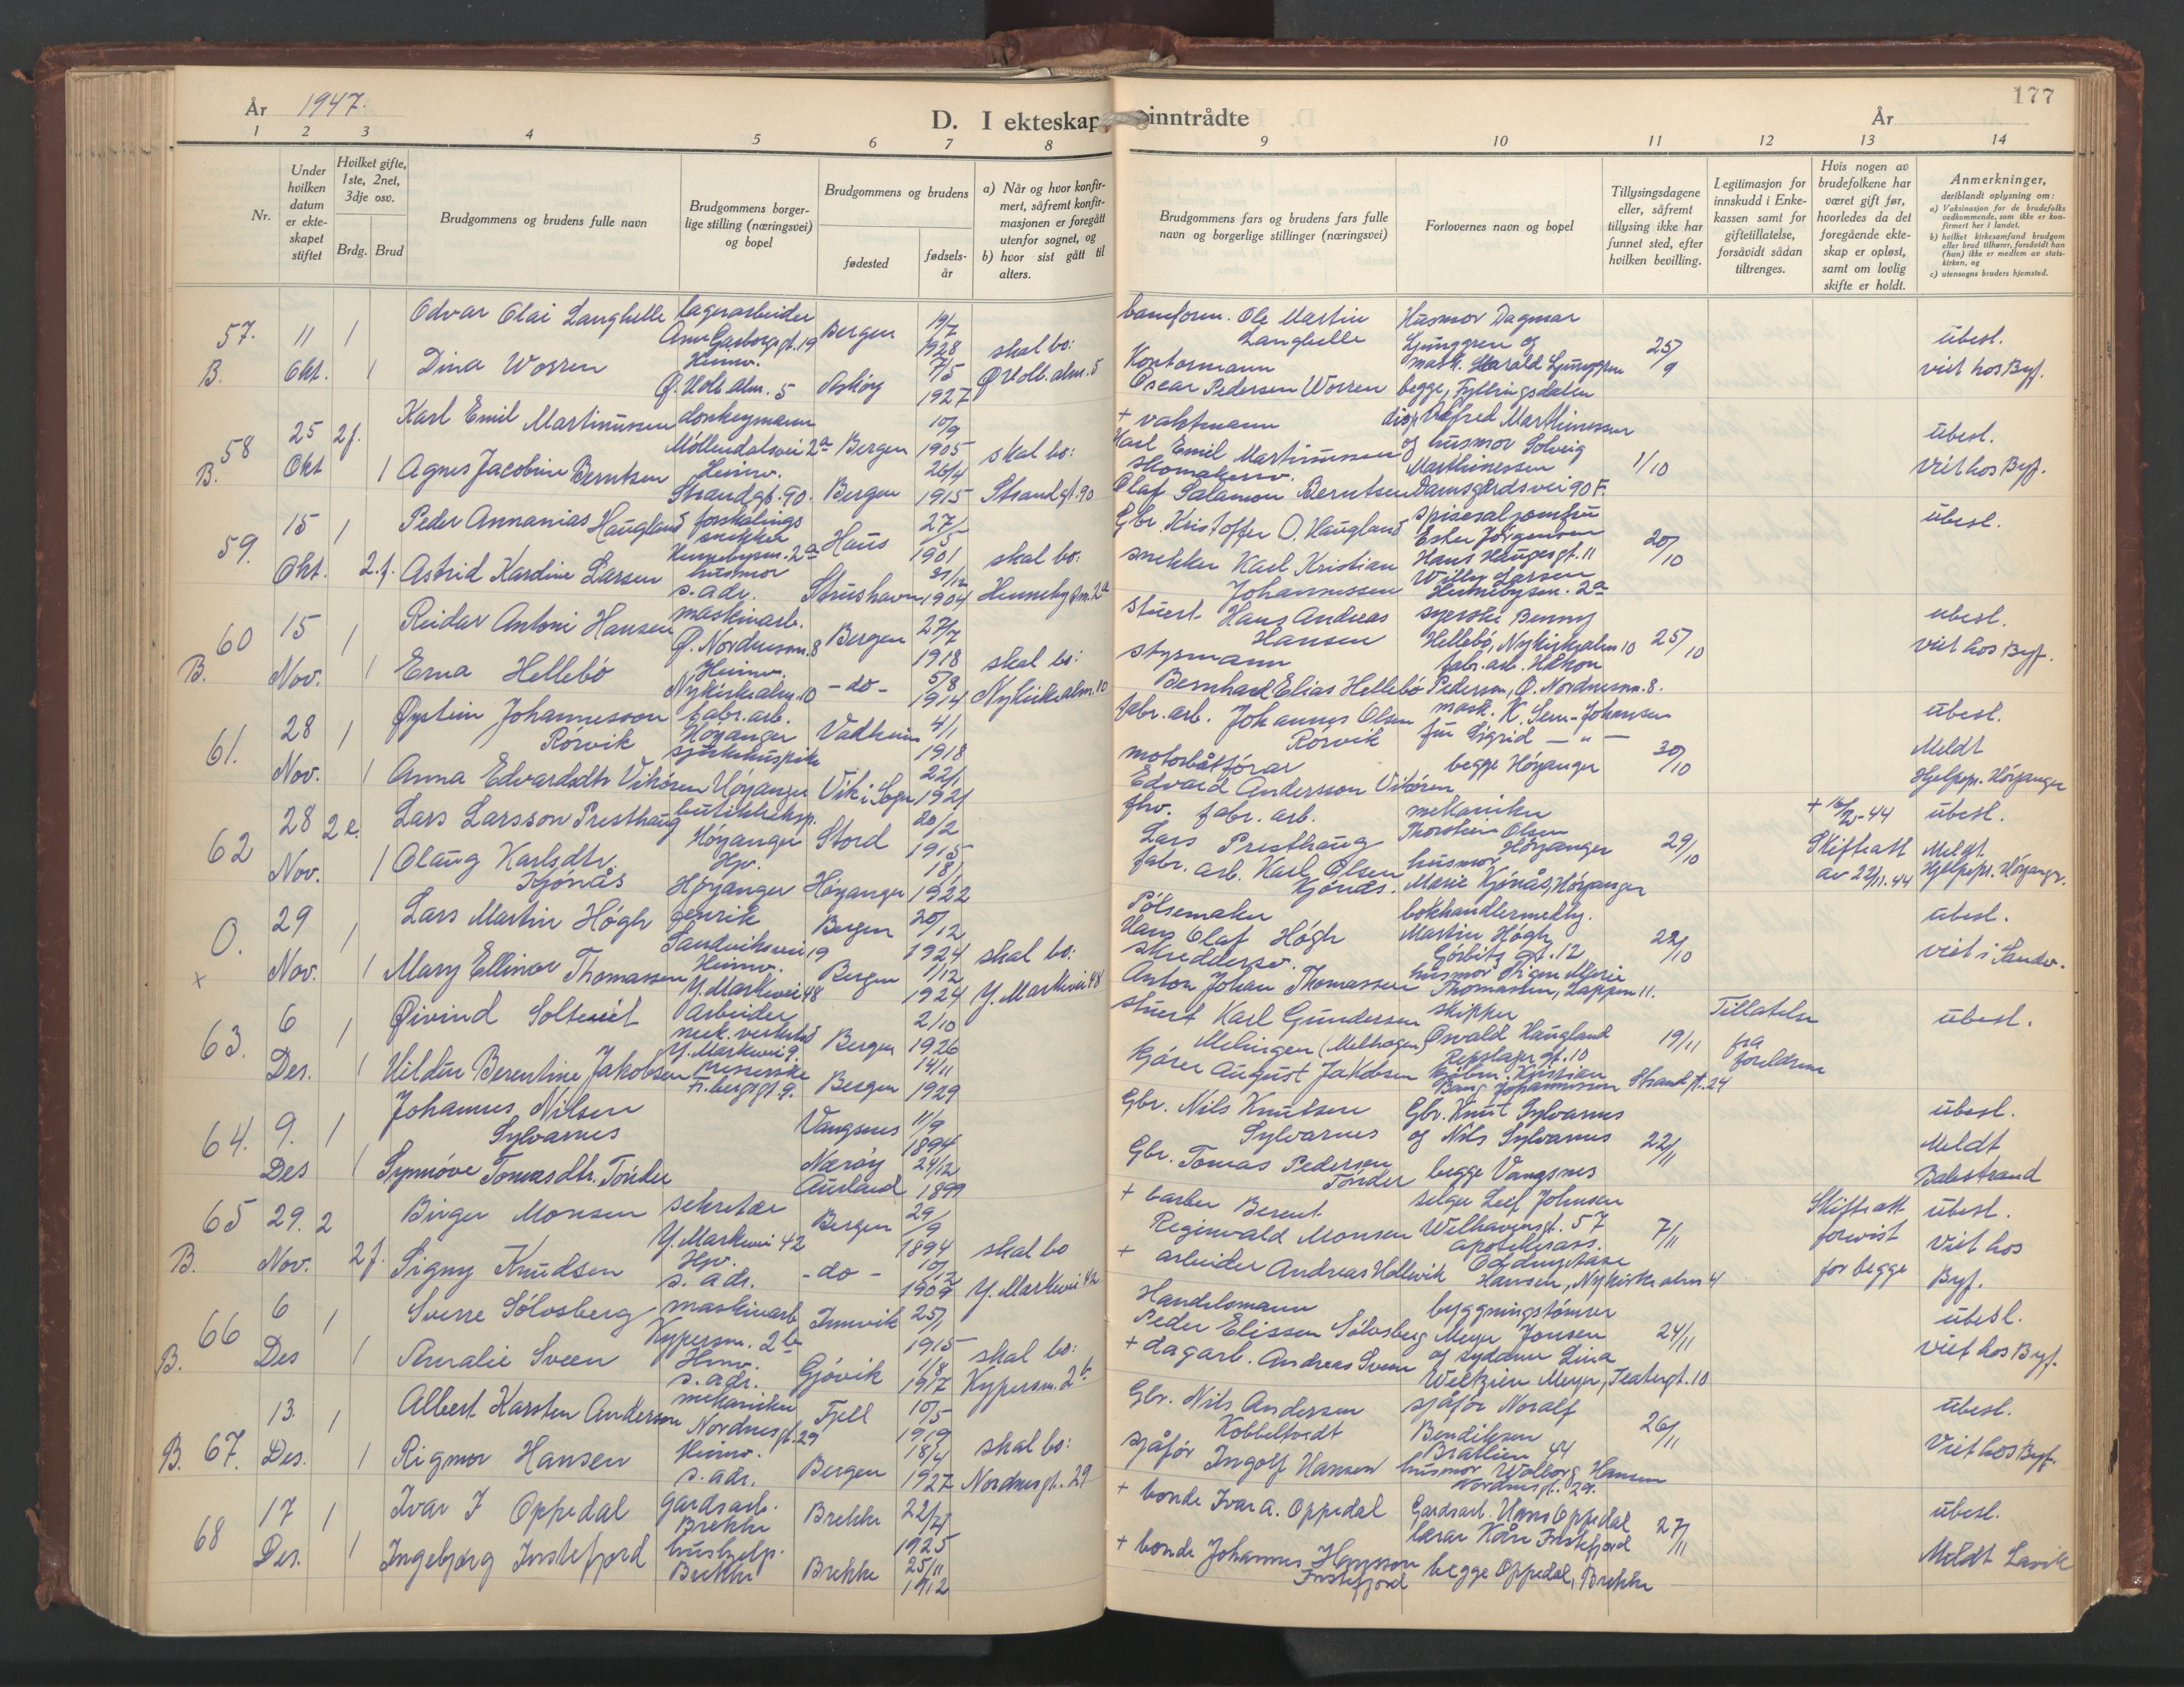 År 1947.
D. I ekteskap inntrådte
År
177
1 2 3 4 5 6 7 8 9 10 11 12 13 14
Nr.
Under hvilken datum er ekteskapet stiftet
Hvilket gifte, 1ste, 2net, 3dje osv.
Brdg. Brud
Brudgommens og brudens fulle navn
Brudgommens borgerlige stilling (næringsvei) og bopel
Brudgommens og brudens
fødested
fødselsår
a) Når og hvor konfirmert, såfremt konfirmasjonen er foregått utenfor sognet, og
b) hvor sist gått til alters.
Brudgommens fars og brudens fars fulle navn og borgerlige stillinger (næringsvei)
Forlovernes navn og bopel
Tillysingsdagene eller, såfremt tillysing ikke har funnet sted, efter hvilken bevilling.
Legitimasjon for innskudd i Enkekassen samt for giftetillatelse, forsåvidt sådan tiltrenges.
Hvis nogen av brudefolkene har været gift før, hvorledes da det foregående ekteskap er opløst, samt om lovlig skifte er holdt.
Anmerkninger,
deriblandt oplysning om:
a) Vaksinasjon for de brudefolks vedkommende, som ikke er konfirmert her i landet.
b) hvilket kirkesamfund brudgom eller brud tilhører, forsåvidt han (hun) ikke er medlem av statskirken, og
c) utensogns bruders hjemsted.
57. B. 11 Okt. 1 1
Odvar Olai Langhelle lagerarbeider Bergen 19/7 1928
Dina Worren Heimv. Ø. Holb. alm. 5 Askøy 7/5 1927
skal bo: Ø Holb. alm. 5
Ole Martin Langhelle
Kontormann Oscar Pedersen Worren
Husmor Dagmar Ljunggren og mask. Harald Ljunggren begge, Fyllingsdalen
25/9
ubesl. viet hos Byf.
58 B. 25 Okt 2 f. 1
Karl Emil Martinussen donkeymann Møllendalsvei 2a Bergen 10/9 1905
Agnes Jacobine Berntsen Heimv. Strandgt. 90. Bergen 26/4 1915
skal bo: Strandgt. 90
+ vaktmann Karl Emil Martinussen
skomakersv. Olaf Salamon Berntsen
disp Alfred Marthinessen og husmor Solveig Marthinessen Damsgårdsvei 90 F.
1/10
ubesl. Viet hos Byf.
59. 15 Okt. 1 2.f.
Peder Annanias Haugland forskalingssnekker Hennebysm. 2a Haus 27/5 1901
Astrid Kardine Larsen husmor s. adr. Strushavn 31/12 1904
skal bo: Hennebysm. 2a
Gbr. Kristoffer O. Haugland
snekker Karl Kristian Johannessen
spisesaljomfru Ester Jørgensen Hans Haugesgt. 11
Willy Larsen Hennebysm. 2a
20/10
ubesl.
60 B. 15 Nov. 1 1
Reidar Antoni Hansen maskinarb. Ø. Nordnessm. 8 Bergen 27/7 1918
Erna Hellebø Heimv. Nykirkealm. 10 -do- 5/8 1914
skal bo: Nykirkealm. 10
Stuert Hans Andreas Hansen
styrmann Bernhard Elias Hellebø
syerske Benny Hellebø, Nykirkealm 10
fabr. arb. Håkon Pedersen, Ø. Nordnessm. 8.
25/10
ubesl. viet hos Byf.
61. 28 Nov. 1 1
Øystein Johannesson Rørvik fabr. arb. Høyanger Vadheim 4/1 1918
Anna Edvardsdtr Vikøren sjukehuspike Høyanger Vik i Sogn 22/1 1921
fabr. arb. Johannes Olsen Rørvik
motorbåtførar Edvard Andersson Vikøren
mask. K. Sem-Johansen
fru Sigrid — " — begge Høyanger
30/10
ubesl. Meldt Hjelpepr. Høyanger
62 28 Nov. 2 e. 1
Lars Larsson Presthaug butikkeksp. Høyanger Stord 20/2 1915
Olaug Karlsdtr. Kjønås Hv. Høyanger Høyanger 18/1 1922
fhv. fabr. arb. Lars Presthaug
fabr. arb. Karl Olsen Kjønås.
mekaniker Thorstein Olsen Høyanger
husmor Marie Kjønås, Høyanger
29/10
Skifteatt av 22/11. 44
ubesl. Meldt Hjelpepr. Høyangr.
O. x 29 Nov. 1 1
Lars Martin Høgh Sandviksvei 19 Bergen 20/12 1924
Mary Ellinor Thomassen Heimv. Y. Markevei 48 Bergen 1/12 1924
skal bo: Y. Markevei 48
Pølsemaker Hans Olaf Høgh
skreddersv. Anton Johan Thomassen
bokhandlermedhj. Martin Høgh Gørbitz gt. 12
husmor Signe Marie Thomassen, Lappen 11.
22/10
ubesl. viet i Sandv.
63. 6 Des. 1 1
Øivind Soltveit Arbeider mek. verksted Y. Markevei 9. Bergen 2/10 1926
Hildur Berentine Jakobsen presserske Fr. bergsgt 9. Bergen 14/11 1929
stuert Karl Gundersen Melingen (Melhogen)
Kjører August Jakobsen
skipper Osvald Haugland Repslagergt. 10
Kjøbm. Kristian Bang Johannessen Strandgt. 24
19/11
Tillatelse fra foreldrene
ubesl.
64. 9. Des 1 1
Johannes Nilsen Sylvarnes Vangsnes 11/9 1894
Synnøve Tomasdtr. Tønder Nærøy Aurland 24/12 1899
Gbr. Nils Knutsen Sylvarnes
Gbr. Tomas Pedersen Tønder
Gbr. Knut Sylvarnes og Nils Sylvarnes begge Vangsnes
22/11
ubesl. Meldt Balestrand
65 B. 29. Nov. 2 2 f.
Birger Monsen sekretær Y. Markevei 42 Bergen 29/9 1894
Signy Knudsen Hv. s. adr. -do-
skal bo Y. Markevei 42
+ barber Berent Reginwald Monsen
+ arbeider Andreas Hellevik
selger Leif Johnsen Welhavensgt. 57
apotekerass. Hansen, Nykirke alm 4
7/11
Skifteatt forevist for begge
ubesl. Viet hos Byf.
66 B. 6 Des 1 1
Sverre Sølvsberg maskinarb Kypersm. 2b Innvik 25/1 1915
Amalie Sveen Hmv. s. adr. Gjøvik 1/8 1917
skal bo: Kypersm. 2b
Handelsmann Peder Elissen Sølvsberg
+ dagarb. Andreas Sveen
byggningstømrer Meyer Jonsen
og syddame Lina Weltzien Meyer, Teatergt. 10
24/11
ubesl. viet hos Byf.
B. 67. 13. Des. 1 1
Albert Karsten Anderson mekaniker Nordnesgt. 29 Fjell 10/5 1919
Rigmor Hansen Heimv. s. adr. Bergen 18/4 1927
skal bo: Nordnesgt. 29
Gbr. Nils Andersen Kobbeltvedt
sjåfør Ingolf Hansen
sjåfør Noralf Bendiksen Bratlien 44
husmor Wolborg Hansen Nordnesgt. 29.
26/11
ubesl. Viet hos Byf.
68 17 Des. 1 1
Ivar I Oppedal Gardsarb. Brekke Brekke 22/4 1925
Ingebjørg Instefjord hushjelp. Brekke Brekke 25/11 1912
+ bonde Ivar A. Oppedal
+ bonde Johannes Hansson Instefjord
Gardsarb. Hans Oppedal
lærar Kåre Instefjord begge Oppedal, Brekke
27/11
ubesl. Meldt Lavik